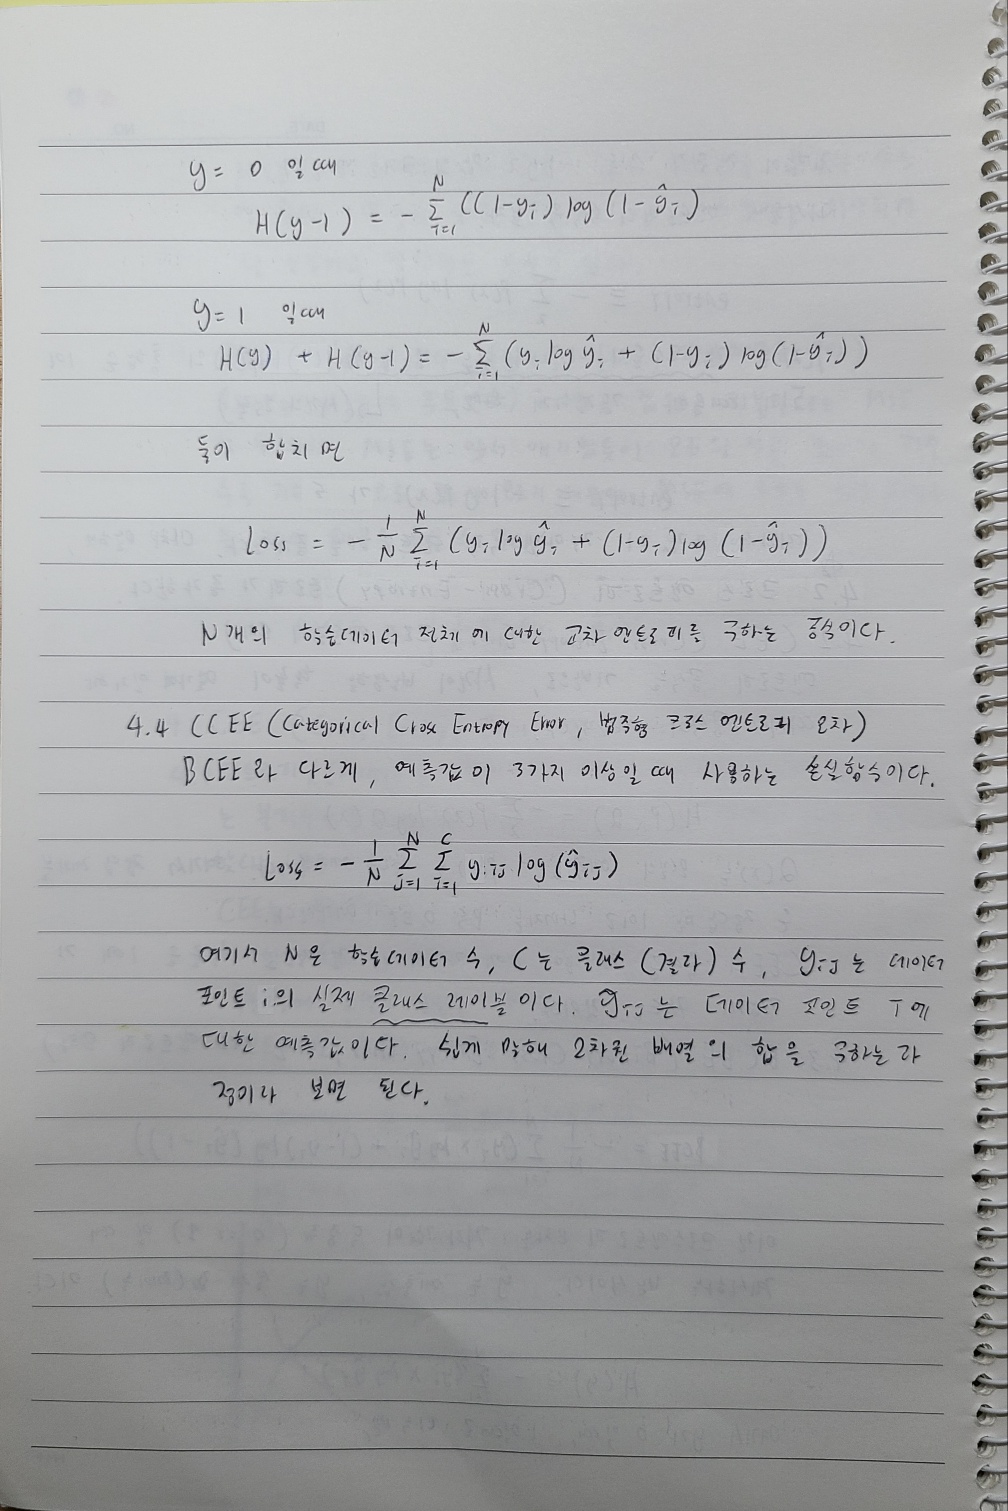 y = 0 일 때
H(y-1) = - Σ_{i=1}^{N} ((1-y_i) log (1-ŷ_i)
y = 1 일 때
H(y) + H(y-1) = - Σ_{i=1}^{N} (y_i log ŷ_i + (1-y_i) log (1-ŷ_i))
둘이 합치면
Loss = - 1/N Σ_{i=1}^{N} (y_i log ŷ_i + (1-y_i) log (1-ŷ_i))
N개의 학습데이터 전체에 대한 교차 엔트로피를 구하는 공식이다.
4.4 CCEE (Categorical Cross Entropy Error, 범주형 크로스 엔트로피 오차)
BCEE와 다르게, 예측값이 3가지 이상일 때 사용하는 손실함수이다.
Loss = - 1/N Σ_{j=1}^{N} Σ_{i=1}^{C} y_{ij} log (ŷ_{ij})
여기서 N은 학습데이터 수, C는 클래스 (결과) 수, y_{ij}는 데이터
포인트 i의 실제 클래스 레이블이다. ŷ_{ij}는 데이터 포인트 i에
대한 예측값이다. 쉽게 말해 2차원 배열의 합을 구하는 과
정이라 보면 된다.